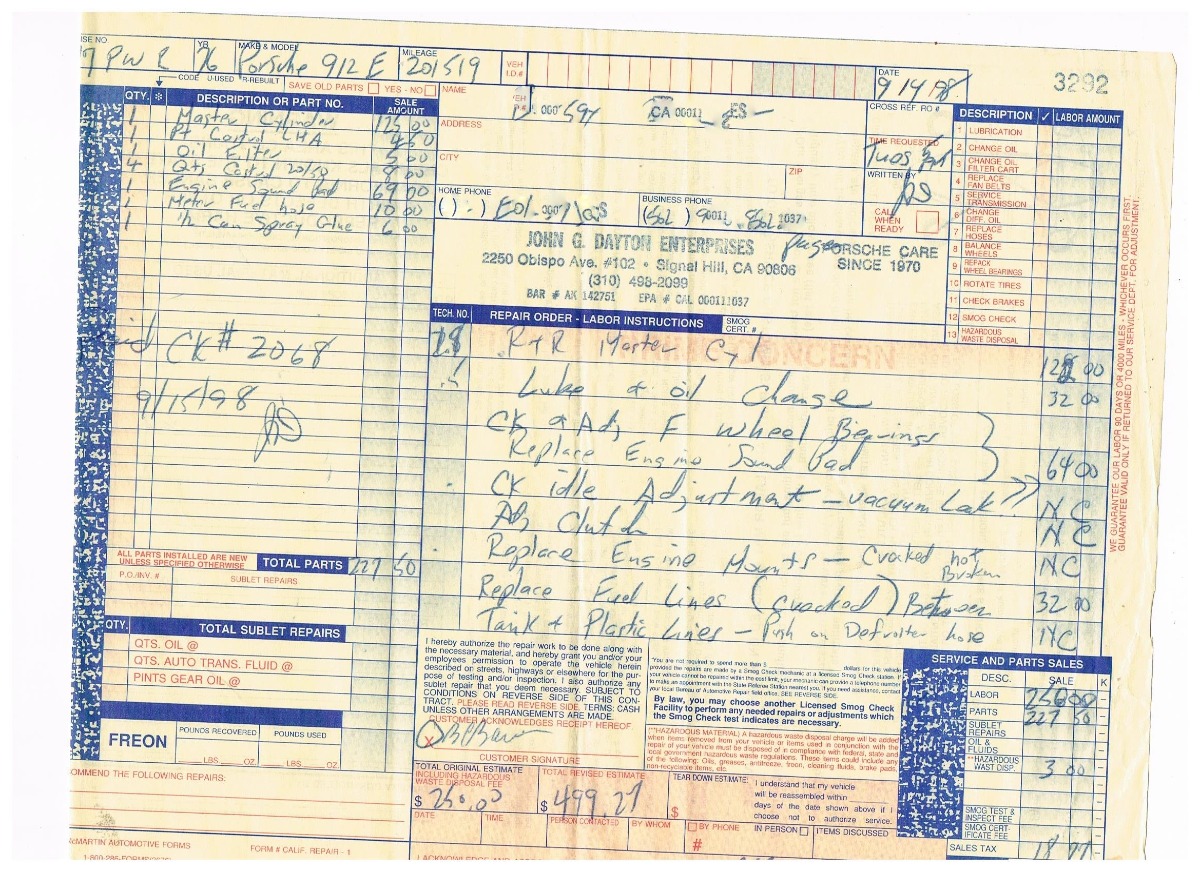 SE NO. YR. MAKE & MODEL MILEAGE VEH I.D.# DATE
7 PWR 76 Porsche 912 E 201519 9/14/98 3292
CODE U-USED R-REBUILT SAVE OLD PARTS YES - NO
QTY. * DESCRIPTION OR PART NO. SALE AMOUNT
1 Master Cylinder 125 00
1 Pt Castrol LMA 4 50
1 Oil Filter 5 00
4 Qts Castrol 20/50 8 00
1 Engine Sound Pad 69 00
1 Meter Fuel hose 10 00
1 1/2 Can Spray Glue 6 00
Paid CK# 2068
9/15/98
ALL PARTS INSTALLED ARE NEW
UNLESS SPECIFIED OTHERWISE TOTAL PARTS 227 50
P.O./INV. # SUBLET REPAIRS
QTY. TOTAL SUBLET REPAIRS
QTS. OIL @
QTS. AUTO TRANS. FLUID @
PINTS GEAR OIL @
FREON POUNDS RECOVERED POUNDS USED
LBS. OZ. LBS. OZ.
OMMEND THE FOLLOWING REPAIRS:
McMARTIN AUTOMOTIVE FORMS FORM # CALIF. REPAIR - 1
NAME
ADDRESS
CITY
ZIP
HOME PHONE
BUSINESS PHONE
CROSS REF. RO #
TIME REQUESTED
Tues
WRITTEN BY
CALL WHEN READY
JOHN G. DAYTON ENTERPRISES
2250 Obispo Ave. #102 • Signal Hill, CA 90806
(310) 498-2099
BAR # AK 142751 EPA # CAL 000111037
PORSCHE CARE
SINCE 1970
DESCRIPTION ✓ LABOR AMOUNT
1 LUBRICATION
2 CHANGE OIL
3 CHANGE OIL FILTER CART
4 REPLACE FAN BELTS
5 SERVICE TRANSMISSION
6 CHANGE DIFF. OIL
7 REPLACE HOSES
8 BALANCE WHEELS
9 REPACK WHEEL BEARINGS
10 ROTATE TIRES
11 CHECK BRAKES
12 SMOG CHECK
13 HAZARDOUS WASTE DISPOSAL
WE GUARANTEE OUR LABOR 90 DAYS OR 4000 MILES - WHICHEVER OCCURS FIRST.
GUARANTEE VALID ONLY IF RETURNED TO OUR SERVICE DEPT. FOR ADJUSTMENT.
TECH. NO. REPAIR ORDER - LABOR INSTRUCTIONS SMOG CERT. #
R+R Master Cyl 128 00
Lube & oil Change 32 00
CK & Adj F wheel Bearings
Replace Engine Sound Pad 64 00
CK idle Adjustment - vacuum Leak NC
Adj Clutch NC
Replace Engine Mounts - Cracked not Broken NC
Replace Fuel Lines (cracked) Between 32 00
Tank & Plastic Lines - Push on Defroster hose NC
I hereby authorize the repair work to be done along with
the necessary material, and hereby grant you and/or your
employees permission to operate the vehicle herein
described on streets, highways or elsewhere for the pur-
pose of testing and/or inspection. I also authorize any
sublet repair that you deem necessary. SUBJECT TO
CONDITIONS ON REVERSE SIDE OF THIS CON-
TRACT. PLEASE READ REVERSE SIDE. TERMS: CASH
UNLESS OTHER ARRANGEMENTS ARE MADE.
CUSTOMER ACKNOWLEDGES RECEIPT HEREOF.
X
CUSTOMER SIGNATURE
By law, you may choose another Licensed Smog Check
Facility to perform any needed repairs or adjustments which
the Smog Check test indicates are necessary.
TOTAL ORIGINAL ESTIMATE
INCLUDING HAZARDOUS
WASTE DISPOSAL FEE
$ 250.00
TOTAL REVISED ESTIMATE
$ 499.27
TEAR DOWN ESTIMATE:
$
I understand that my vehicle
will be reassembled within
days of the date shown above if I
choose not to authorize service.
DATE TIME PERSON CONTACTED BY WHOM BY PHONE # IN PERSON ITEMS DISCUSSED
SERVICE AND PARTS SALES
DESC. SALE K
LABOR 256 00
PARTS 227 50
SUBLET REPAIRS
OIL & FLUIDS
**HAZARDOUS WAST DISP. 3 00
SMOG TEST & INSPECT FEE
SMOG CERT- IFICATE FEE
SALES TAX 18 77